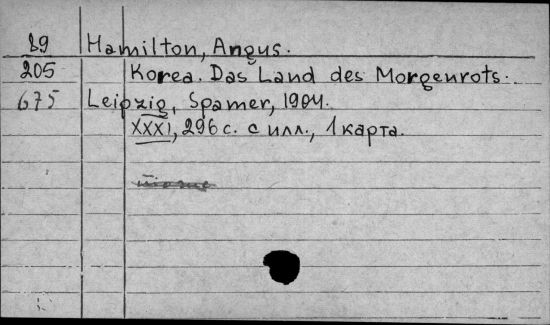 89 Hamilton, Angus.
205 Korea. Das Land des Morgenrots.
675 Leipzig, Spamer, 1904.
XXXI, 296 с. с илл., 1 карта.